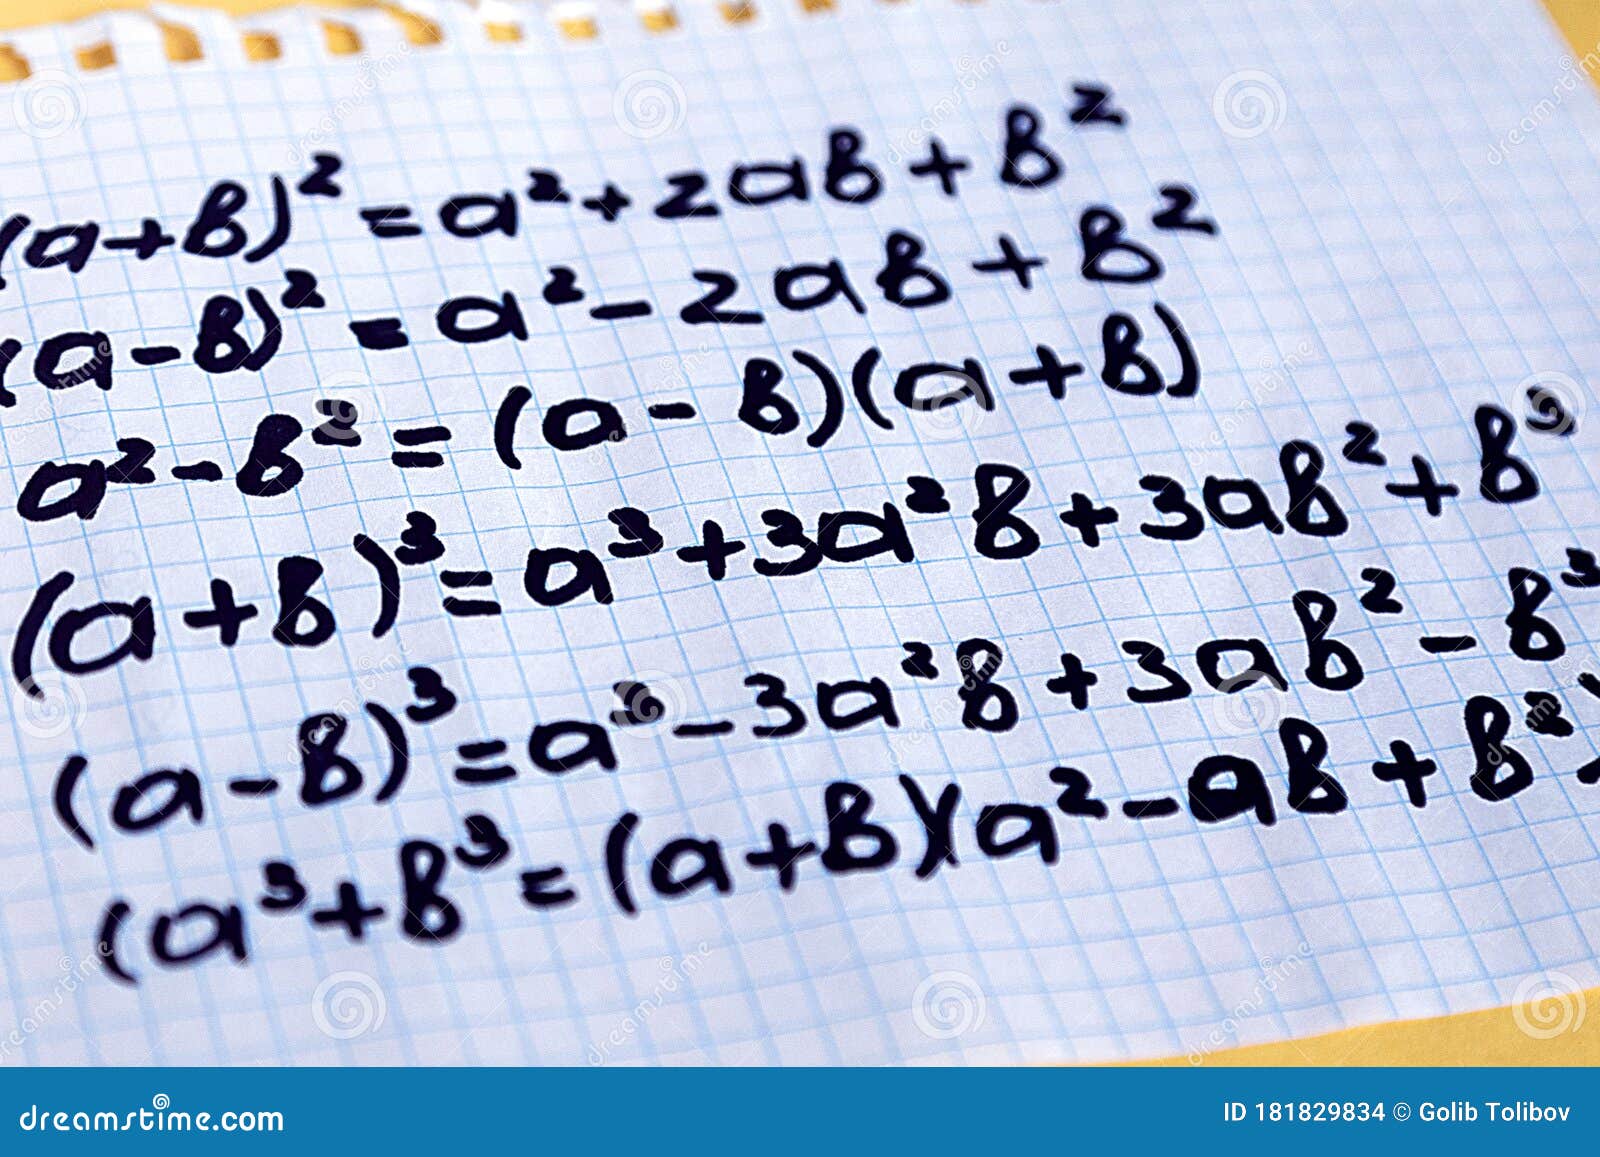 (a+b)²=a²+2ab+b²
(a-b)²=a²-2ab+b²
a²-b²=(a-b)(a+b)
(a+b)³=a³+3a²b+3ab²+b³
(a-b)³=a³-3a²b+3ab²-b³
(a³+b³=(a+b)(a²-ab+b²)
dreamstime.com
ID 181829834 © Golib Tolibov